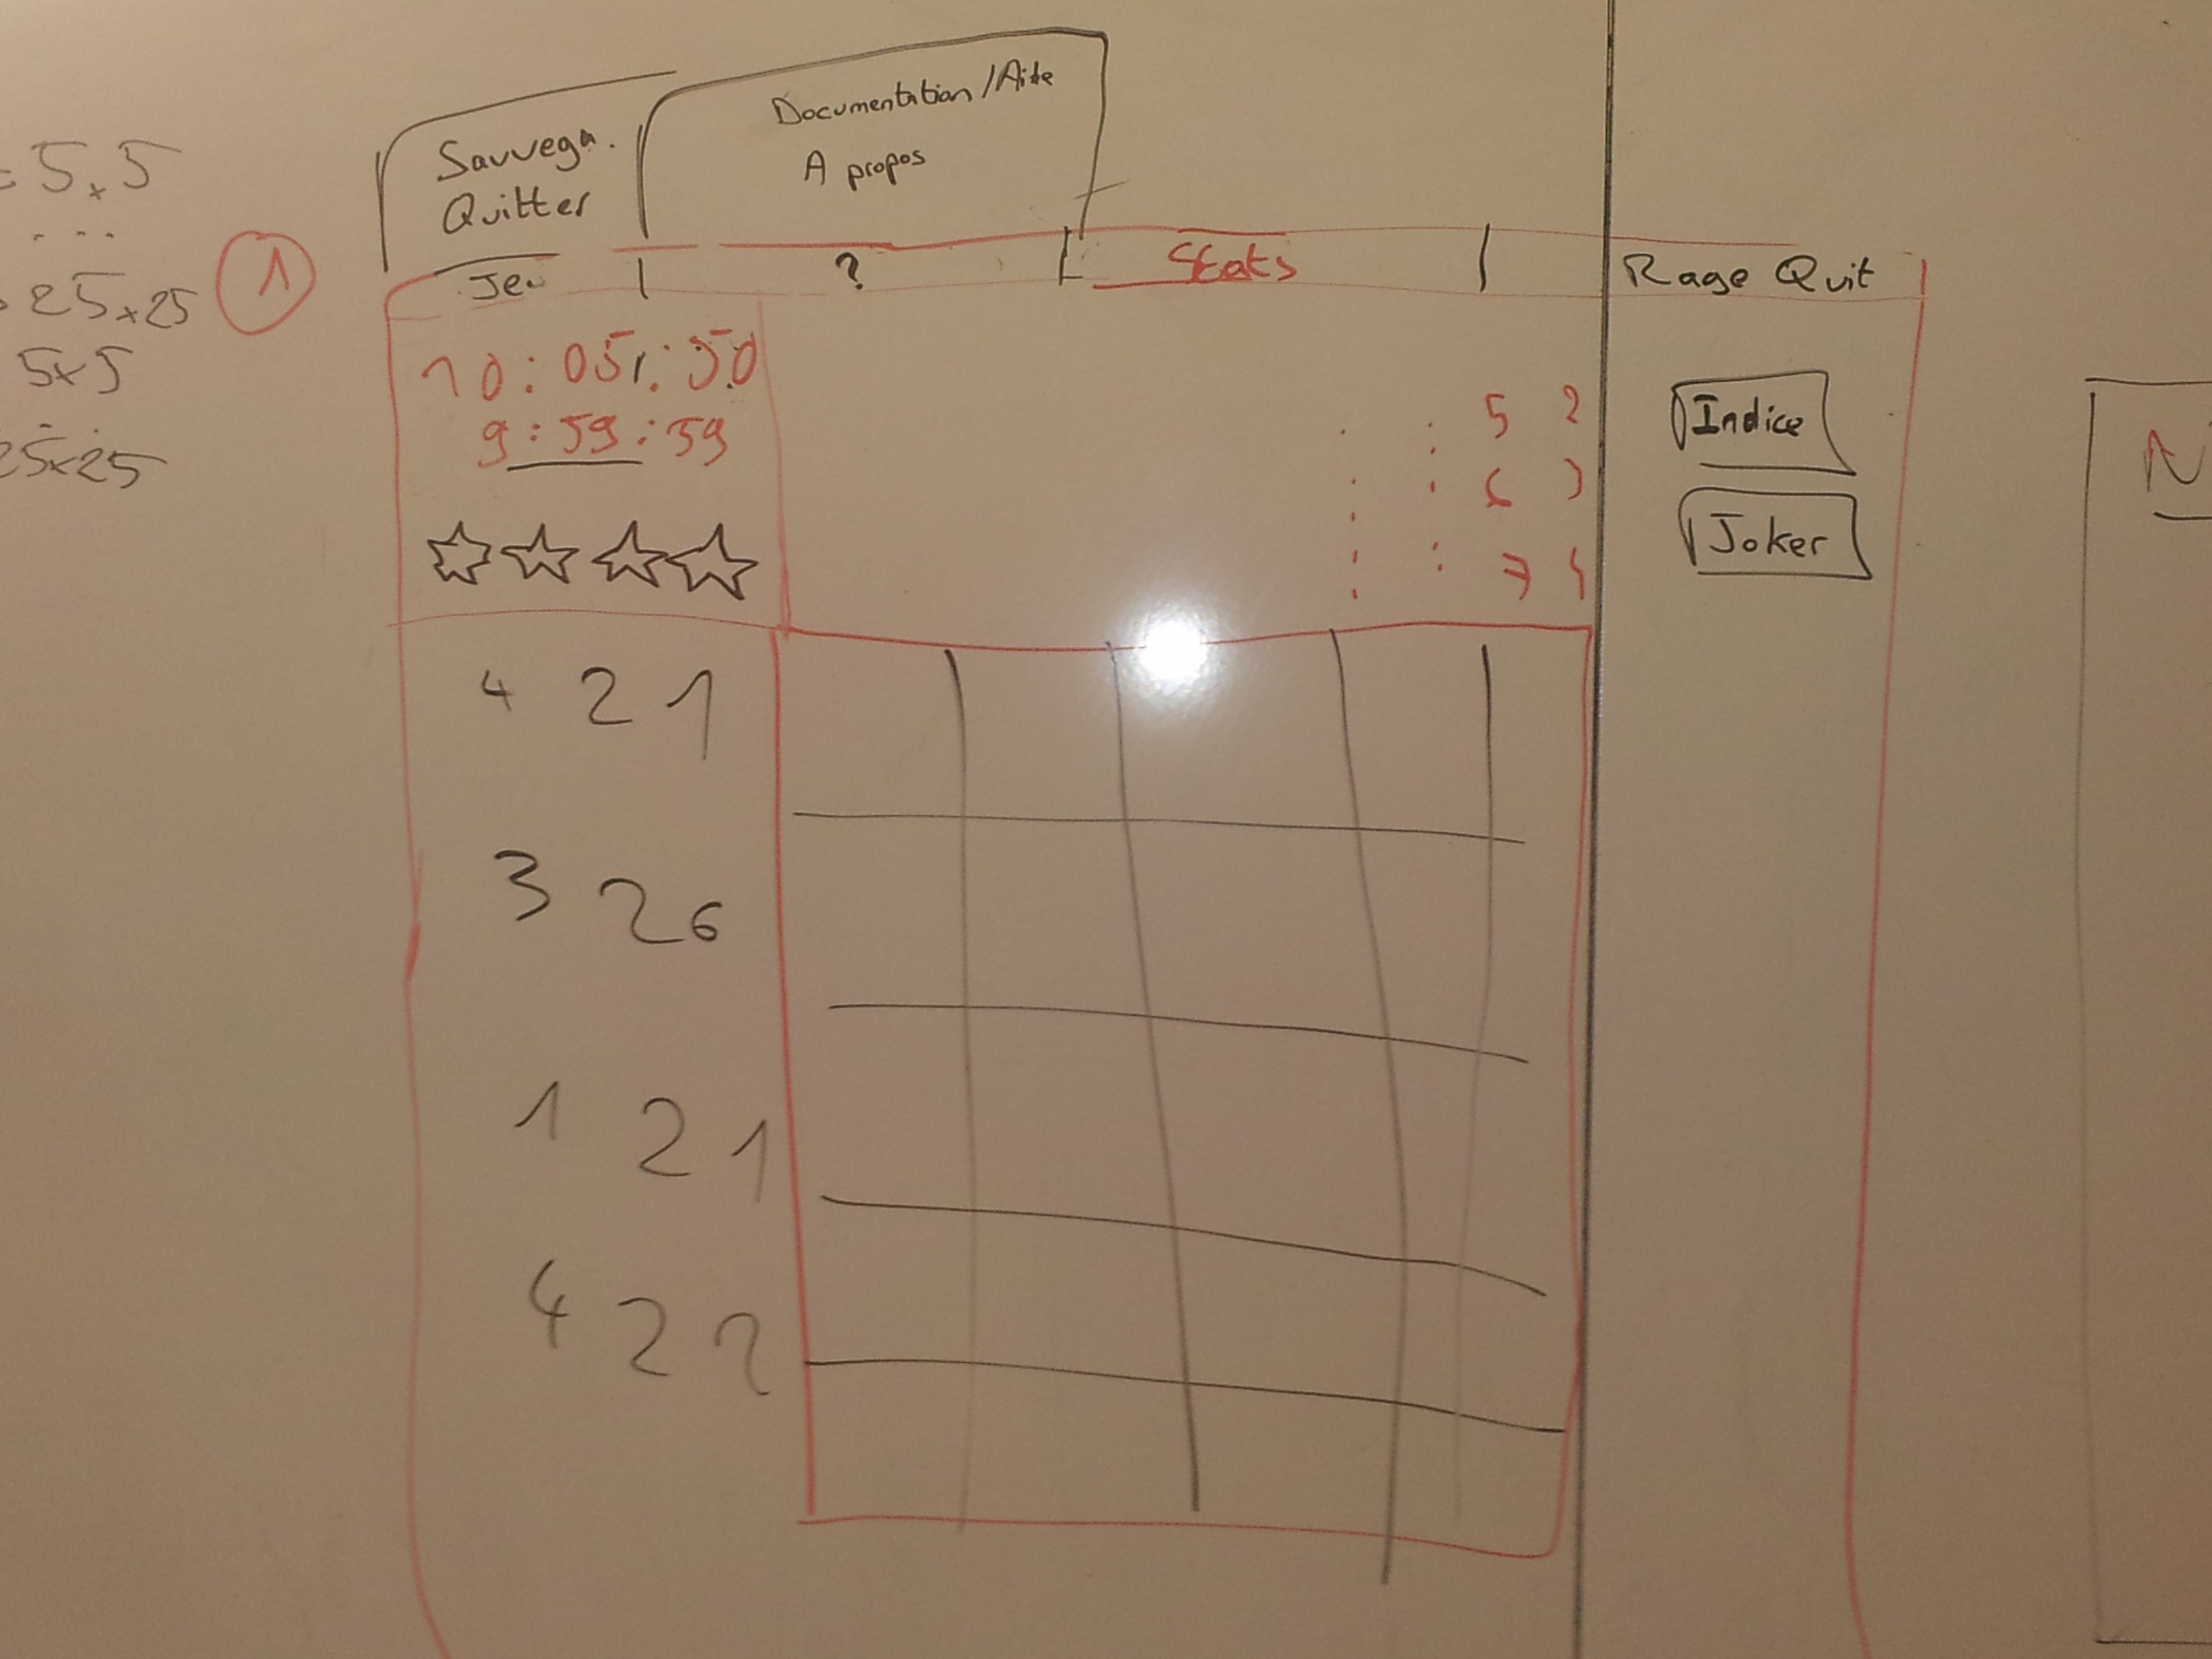 = 5x5
...
25x25
5x5
25x25
1
Sauvega.
Quitter
Documentation/Aide
A propos
Jeu | ? | Stats | Rage Quit
10:05:50
9:59:59
5 2
6 3
7
Indice
Joker
4 2 1
3 2 6
1 2 1
4 2 2
N